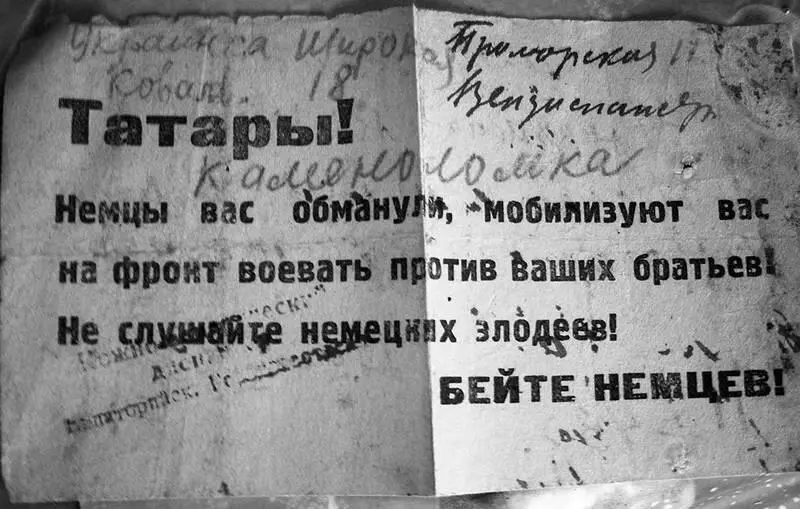 Украинса Широкая
18
Приморская 11
Татары!
Каменоломка
Немцы вас обманули, мобилизуют вас
на фронт воевать против ваших братьев!
Не слушайте немецких злодеев!
БЕЙТЕ НЕМЦЕВ!